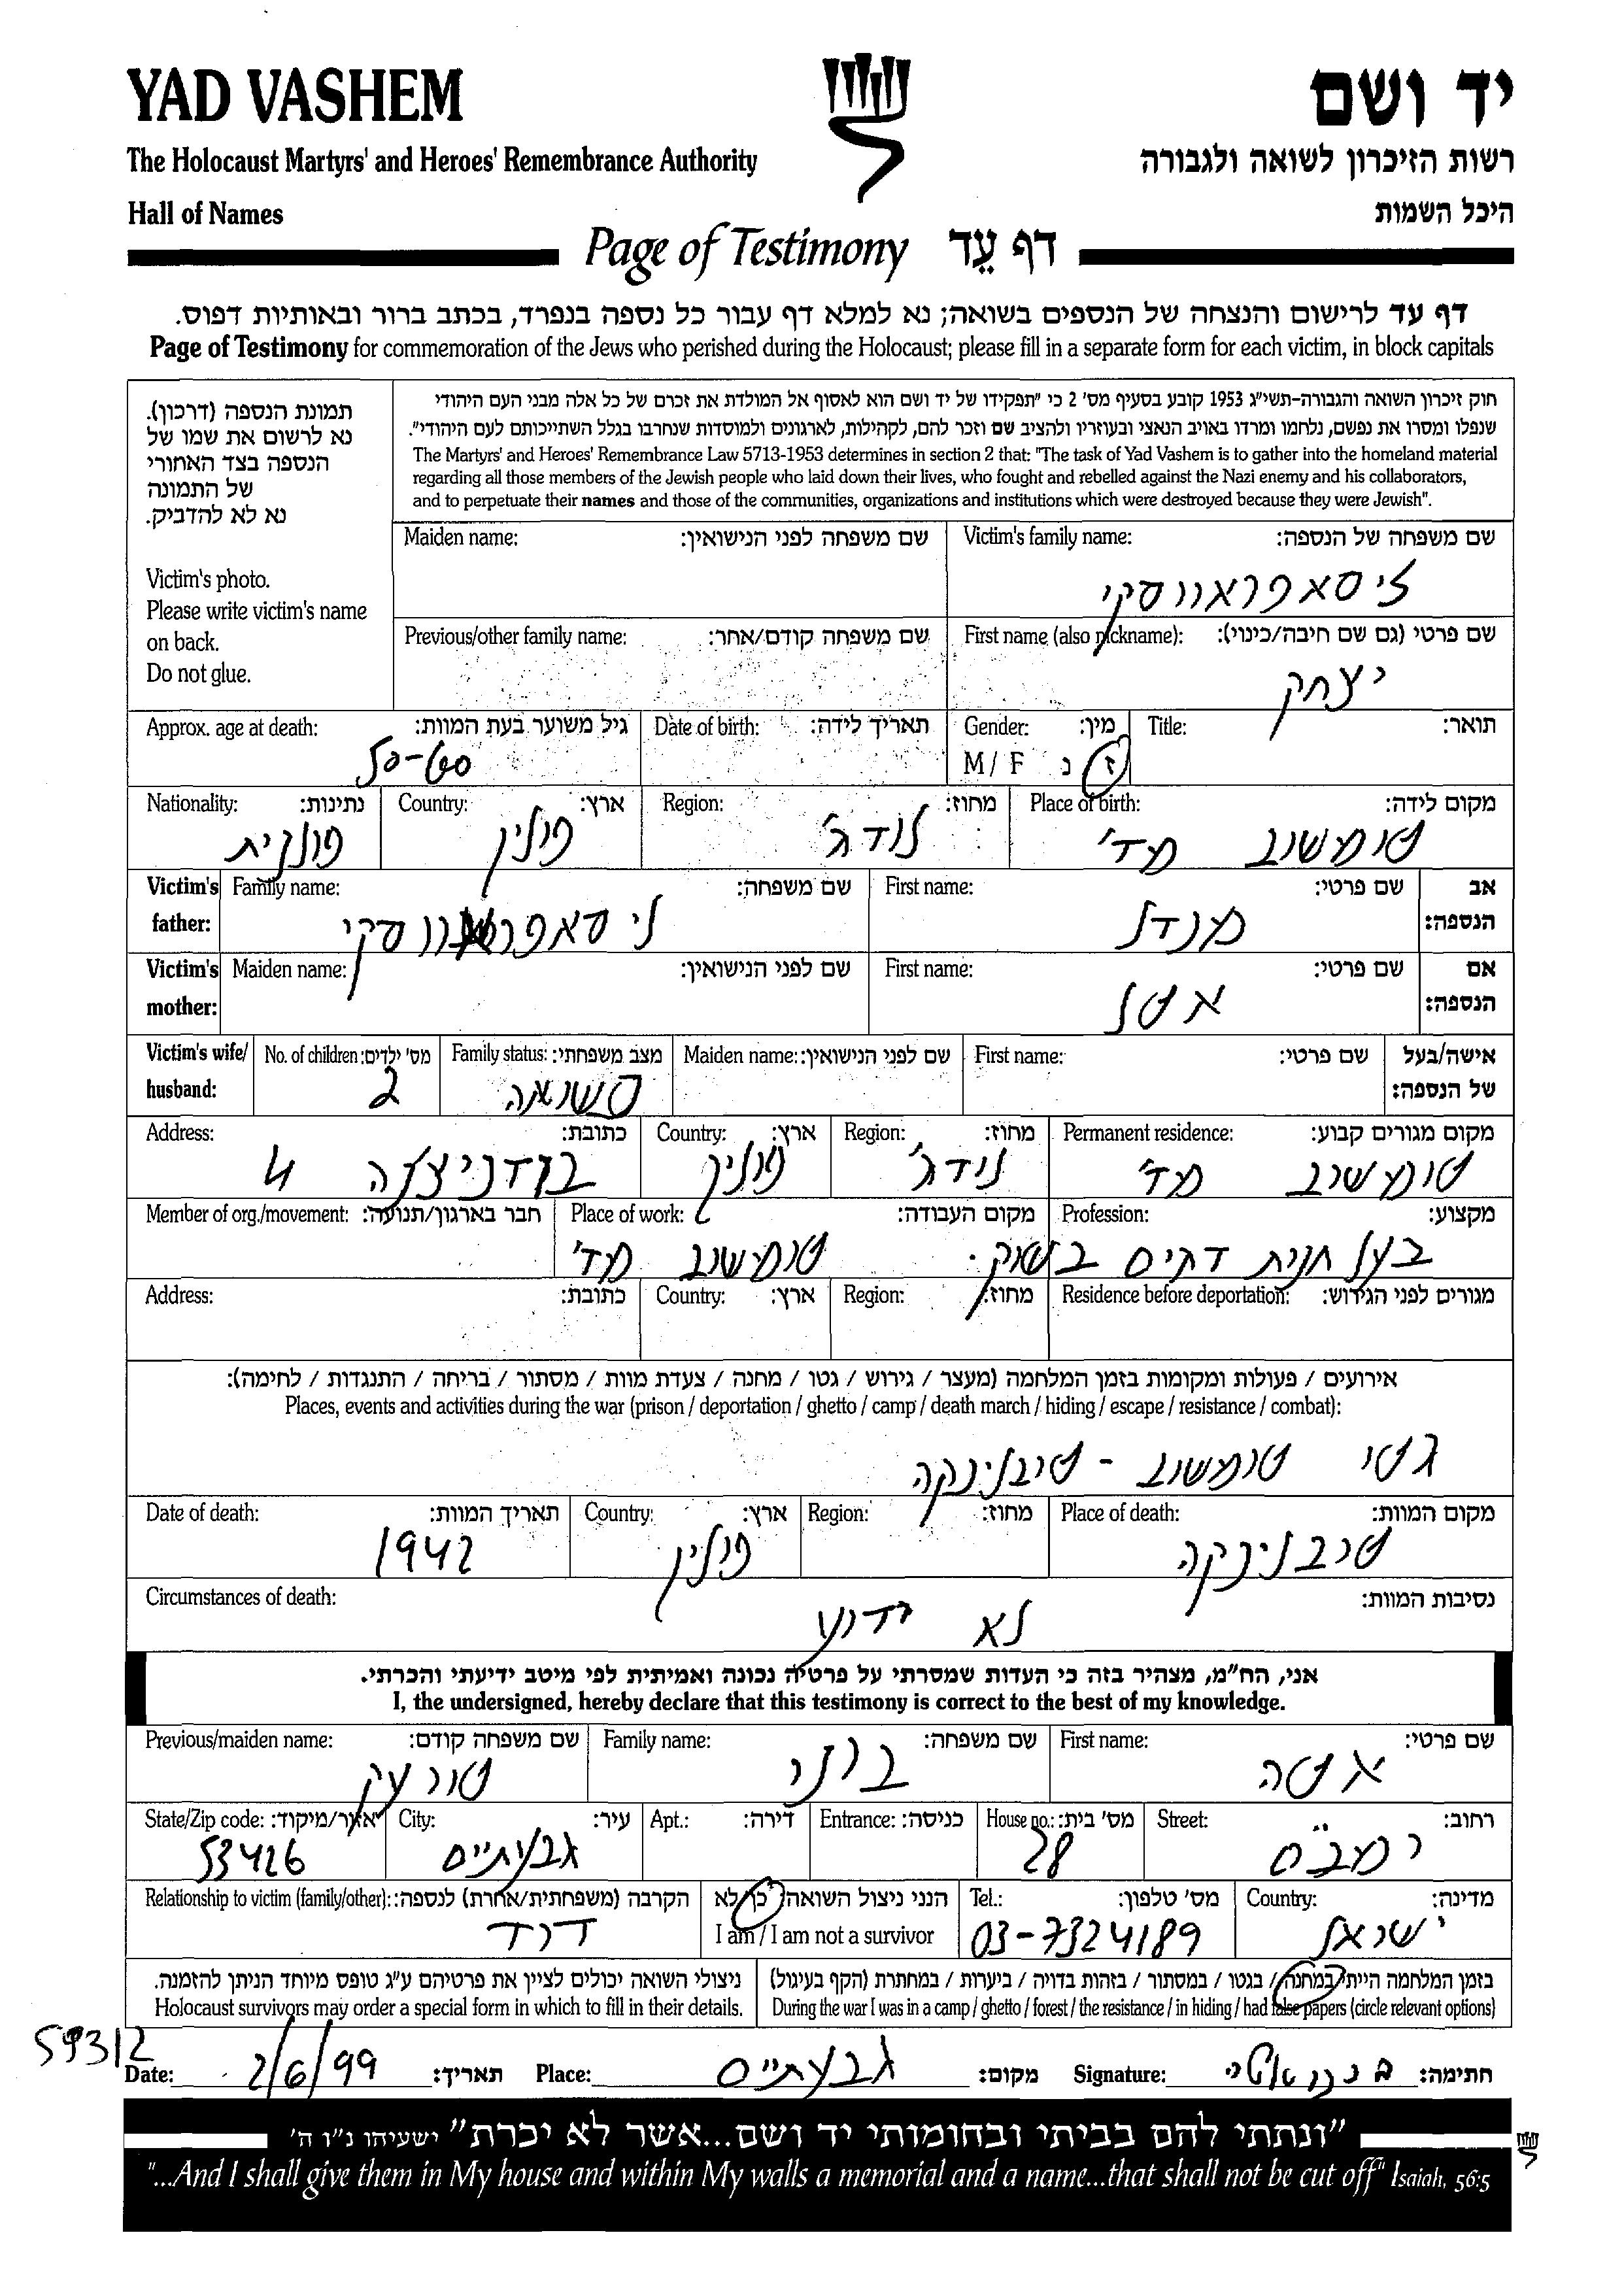 YAD VASHEM יד ושם
The Holocaust Martyrs' and Heroes' Remembrance Authority רשות הזיכרון לשואה ולגבורה
Hall of Names היכל השמות
Page of Testimony דף עֵד
דף עד לרישום והנצחה של הנספים בשואה; נא למלא דף עבור כל נספה בנפרד, בכתב ברור ובאותיות דפוס.
Page of Testimony for commemoration of the Jews who perished during the Holocaust; please fill in a separate form for each victim, in block capitals
תמונת הנספה (דרכון).
נא לרשום את שמו של
הנספה בצד האחורי
של התמונה
נא לא להדביק.
Victim's photo.
Please write victim's name
on back.
Do not glue.
חוק זיכרון השואה והגבורה-תשי"ג 1953 קובע בסעיף מס' 2 כי "תפקידו של יד ושם הוא לאסוף אל המולדת את זכרם של כל אלה מבני העם היהודי
שנפלו ומסרו את נפשם, נלחמו ומרדו באויב הנאצי ובעוזריו ולהציב שם וזכר להם, לקהילות, לארגונים ולמוסדות שנחרבו בגלל השתייכותם לעם היהודי".
The Martyrs' and Heroes' Remembrance Law 5713-1953 determines in section 2 that: "The task of Yad Vashem is to gather into the homeland material
regarding all those members of the Jewish people who laid down their lives, who fought and rebelled against the Nazi enemy and his collaborators,
and to perpetuate their names and those of the communities, organizations and institutions which were destroyed because they were Jewish".
Victim's family name: שם משפחה של הנספה: Maiden name: שם משפחה לפני הנישואין:
ליסאפראווסקי
First name (also nickname): שם פרטי (גם שם חיבה/כינוי): Previous/other family name: שם משפחה קודם/אחר:
יצחק
Title: תואר: Gender: מין: Date of birth: תאריך לידה: Approx. age at death: גיל משוער בעת המוות:
M / F ז נ 50-60
Place of birth: מקום לידה: Region: מחוז: Country: ארץ: Nationality: נתינות:
טומשוב מד' לודג' פולין פולנית
Victim's father: אב הנספה: First name: שם פרטי: Family name: שם משפחה:
מנדל ליסאפראווסקי
Victim's mother: אם הנספה: First name: שם פרטי: Maiden name: שם לפני הנישואין:
אטל
Victim's wife/husband: אישה/בעל של הנספה: First name: שם פרטי: Maiden name: שם לפני הנישואין: Family status: מצב משפחתי: No. of children: מס' ילדים:
2
Permanent residence: מקום מגורים קבוע: Region: מחוז: Country: ארץ: Address: כתובת:
טומשוב מד' לודג' פולין 4
Profession: מקצוע: Place of work: מקום העבודה: Member of org./movement: חבר בארגון/תנועה:
בעל חנות דגים בשוק. טומשוב מד'
Residence before deportation: מגורים לפני הגירוש: Region: מחוז: Country: ארץ: Address: כתובת:
אירועים / פעולות ומקומות בזמן המלחמה (מעצר / גירוש / גטו / מחנה / צעדת מוות / מסתור / בריחה / התנגדות / לחימה):
Places, events and activities during the war (prison / deportation / ghetto / camp / death march / hiding / escape / resistance / combat):
גטו טומשוב - טרבלינקה
Place of death: מקום המוות: Region: מחוז: Country: ארץ: Date of death: תאריך המוות:
טרבלינקה פולין 1942
Circumstances of death: נסיבות המוות:
לא ידוע
אני, הח"מ, מצהיר בזה כי העדות שמסרתי על פרטיה נכונה ואמיתית לפי מיטב ידיעתי והכרתי.
I, the undersigned, hereby declare that this testimony is correct to the best of my knowledge.
First name: שם פרטי: Family name: שם משפחה: Previous/maiden name: שם משפחה קודם:
אטה טורעק
Street: רחוב: House no.: מס' בית: Entrance: כניסה: Apt.: דירה: City: עיר: State/Zip code: אזור/מיקוד:
רמב"ם 28 גבעתיים 53426
Country: מדינה: Tel.: מס' טלפון: הנני ניצול השואה: כן/לא Relationship to victim (family/other): הקרבה (משפחתית/אחרת) לנספה:
ישראל 03-7324189 I am / I am not a survivor דוד
בזמן המלחמה הייתי במחנה / בגטו / במסתור / בזהות בדויה / ביערות / במחתרת (הקף בעיגול)
During the war I was in a camp / ghetto / forest / the resistance / in hiding / had false papers (circle relevant options)
ניצולי השואה יכולים לציין את פרטיהם ע"ג טופס מיוחד הניתן להזמנה.
Holocaust survivors may order a special form in which to fill in their details.
59312
Date: 2/6/99 תאריך: Place: גבעתיים מקום: Signature: חתימה:
"ונתתי להם בביתי ובחומותי יד ושם...אשר לא יכרת" ישעיהו נ"ו ה'
"...And I shall give them in My house and within My walls a memorial and a name...that shall not be cut off" Isaiah, 56:5